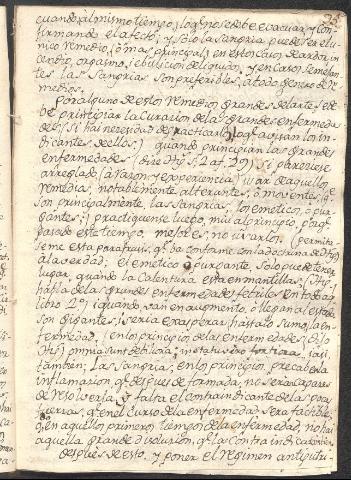 cuando al mismo tiempo, lo qe no se debe evacuar, y con
firmando el afecto; y solo la sangria puede ser el u
nico remedio, (ô mas principal) en estos casos de ardor, in
cendio, orgasmo, i ebulicion de liquidos, y en casos semejan
tes las sangrias son preferibles, a todo genero de re
medios.
Por alguno de estos remedios grandes del arte de
be principiar la curacion de las grandes enfermeda
des (si hai necesidad de practicarlo, lo qe avisan los in
dicantes de ellos) quando principian las grandes
enfermedades (dice Hip. S. 2. af. 29) Si pareciese
arreglado (â razon y experiencia) usar de aquellos
remedios, notablemente alterantes, ô moventes, qe
son principalmente las sangrias, los emeticos, ô pur
gantes; practiquense luego, mui al principio, porqe
pasado este tiempo, mejor es, no usarlos (permita
seme esta parafrasis, qe ba conforme con la doctrina de Hip.
â la verdad; el emetico ô purgante, solo puede tener
lugar, quando la calentura esta en mantillas; (Hip.
habla de las grandes enfermedades febriles en todo a
libro 2º) quando van en aumento, ô llegan al estado
son gigantes; i seria exasperar hasta lo sumo, la en
fermedad, (en los principios de las enfermedades (dijo
Hip) omnia sunt debiliora;
tambien; Las sangrias, en los principios, precaben la
inflamacion, qe despues de formada, no seran capaces
de resolverla, y falta el contraindicante de las pocas
fuerzas, qe en el curso de la enfermedad sera factible,
o, en aquellos primeros tiempos de la enfermedad no hai
aquella grande disolucion, qe las contraindica
despues de esto, y poner el regimen antiputri-